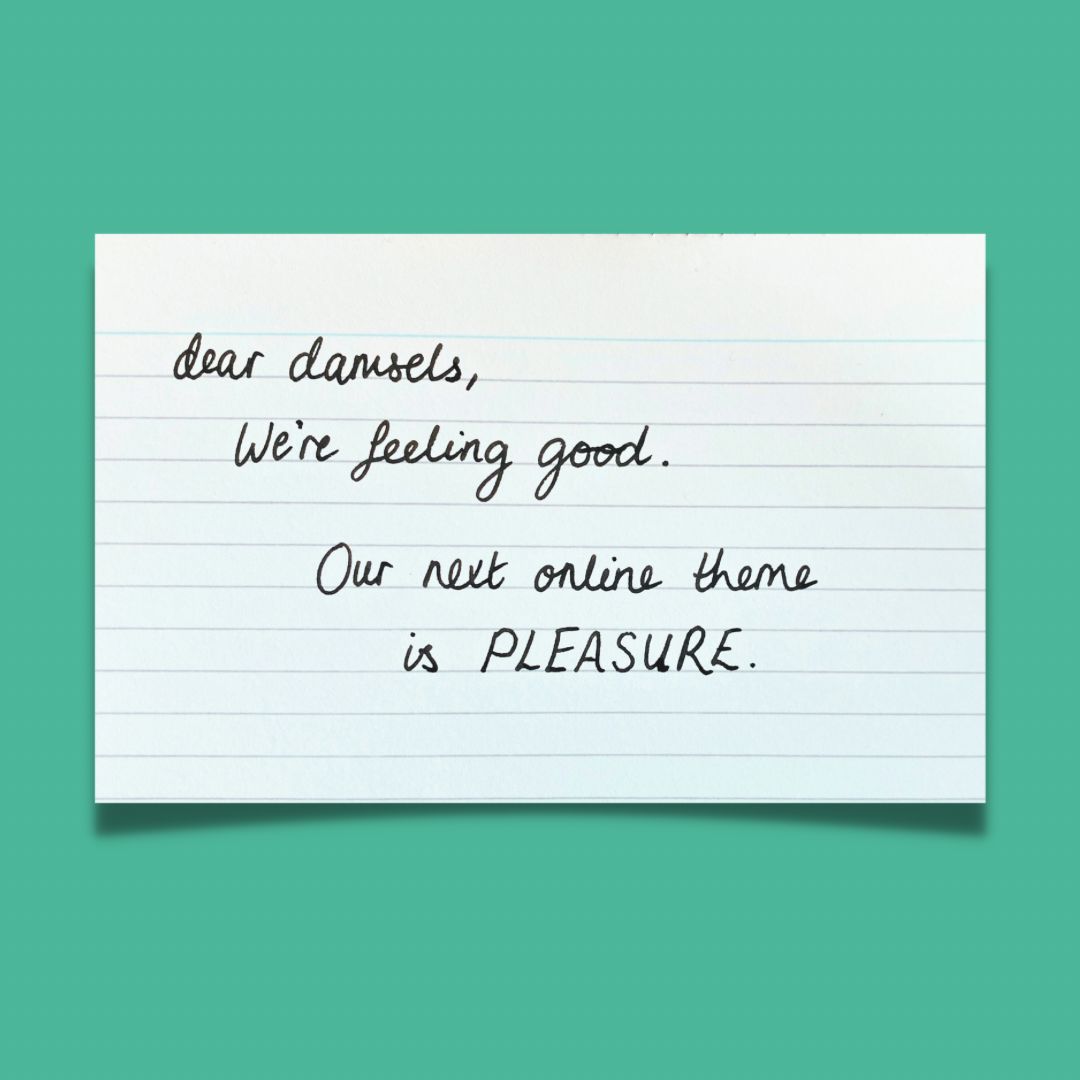 dear damsels,
We're feeling good.
Our next online theme
is PLEASURE.